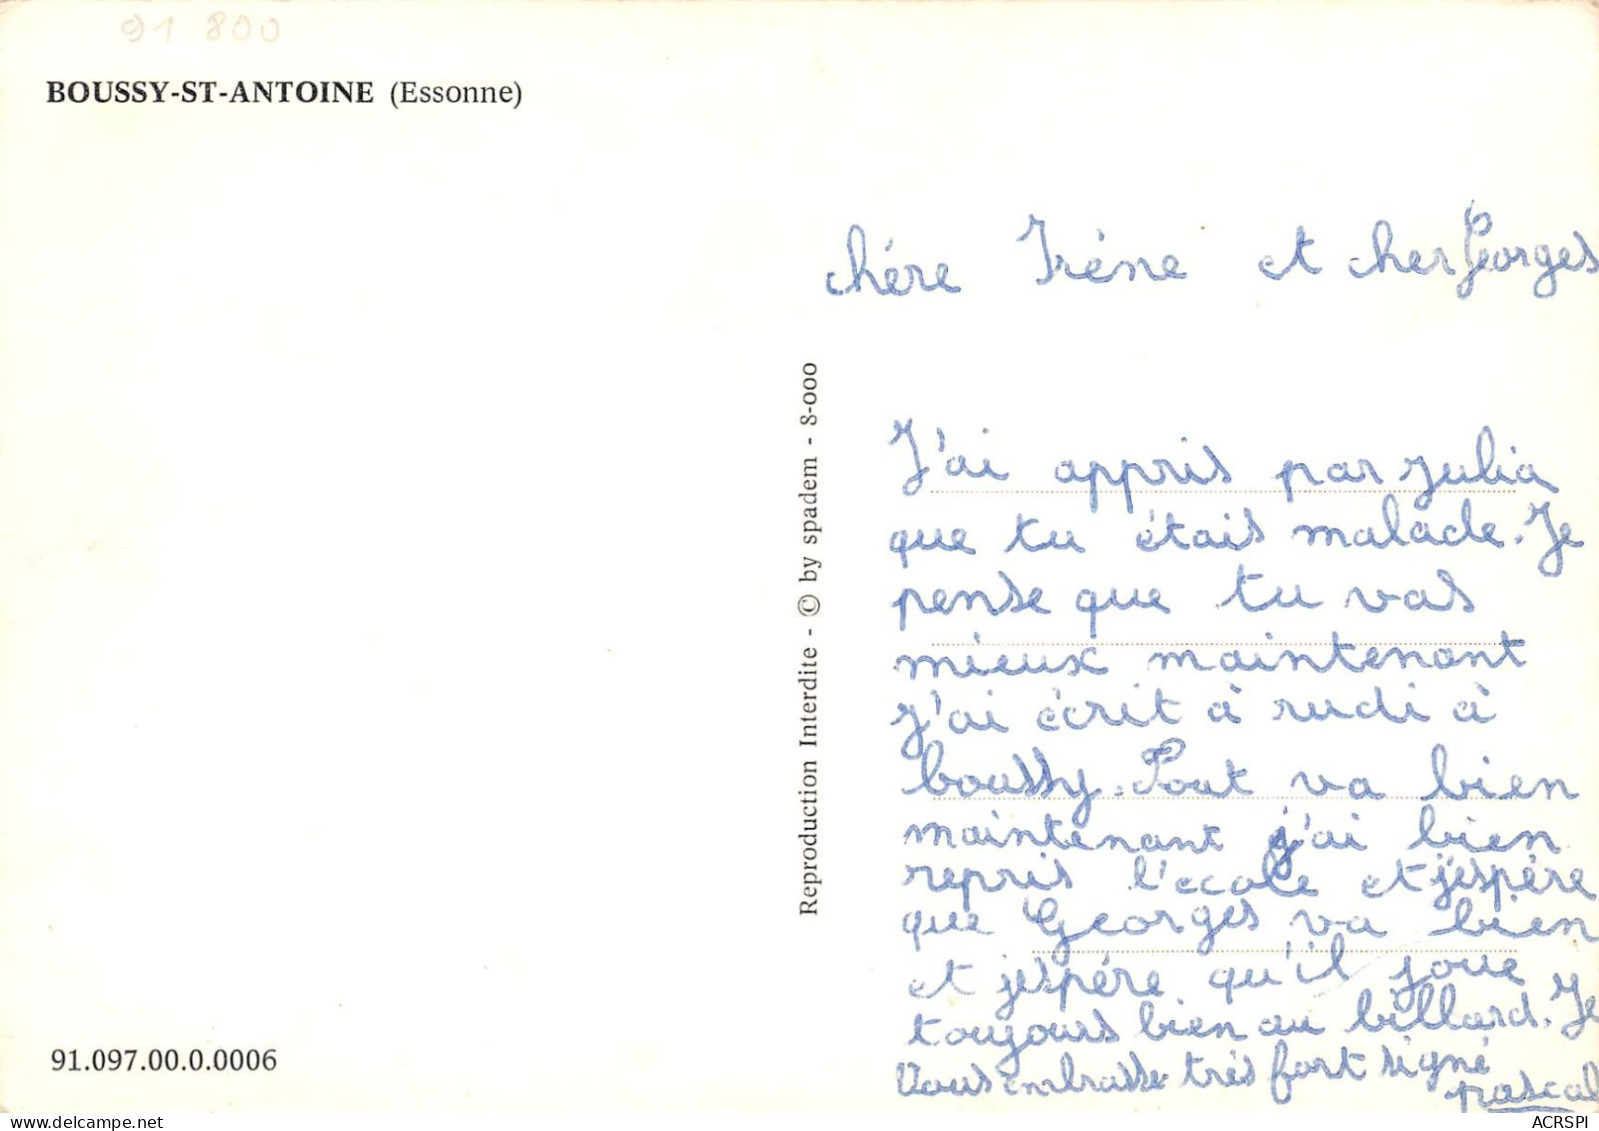 91 800
BOUSSY-ST-ANTOINE (Essonne)
Reproduction Interdite - © by spadem - 8-000
91.097.00.0.0006
chére Irène et cher Georges
J'ai appris par Julia
que tu étais malade. Je
pense que tu vas
mieux maintenant
j'ai écrit à rudi à
boussy. Tout va bien
maintenant j'ai bien
repris l'ecole et j'éspère
que Georges va bien
et j'espére qu'il joue
toujours bien au billard. Je
Vous embrasse très fort signé
pascal
ACRSPI